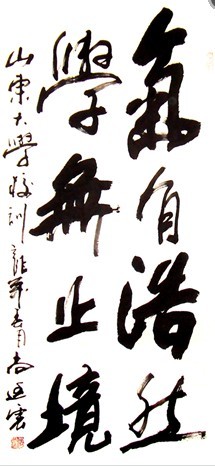 氣有浩然
學無止境
山東大學校訓 龍年春月